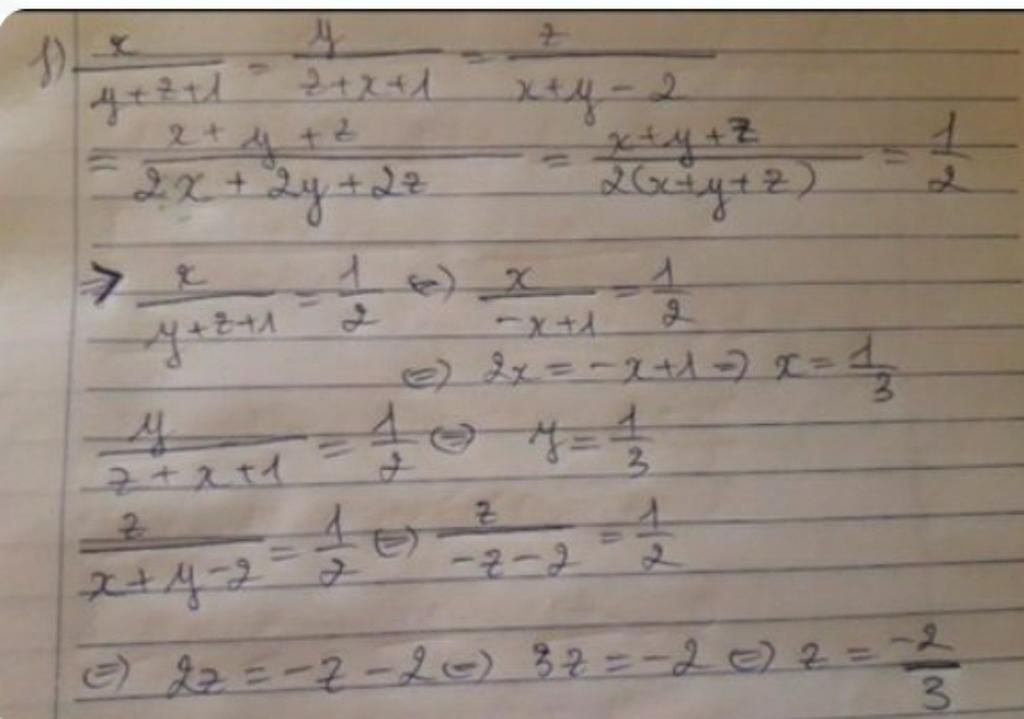 f) x/(y+z+1) = y/(z+x+1) = z/(x+y-2)
= (x+y+z)/(2x+2y+2z) = (x+y+z)/(2(x+y+z)) = 1/2
=> x/(y+z+1) = 1/2 <=> x/(-x+1) = 1/2
<=> 2x = -x+1 => x = 1/3
y/(z+x+1) = 1/2 <=> y = 1/3
z/(x+y-2) = 1/2 <=> z/(-z-2) = 1/2
<=> 2z = -z-2 <=> 3z = -2 <=> z = -2/3